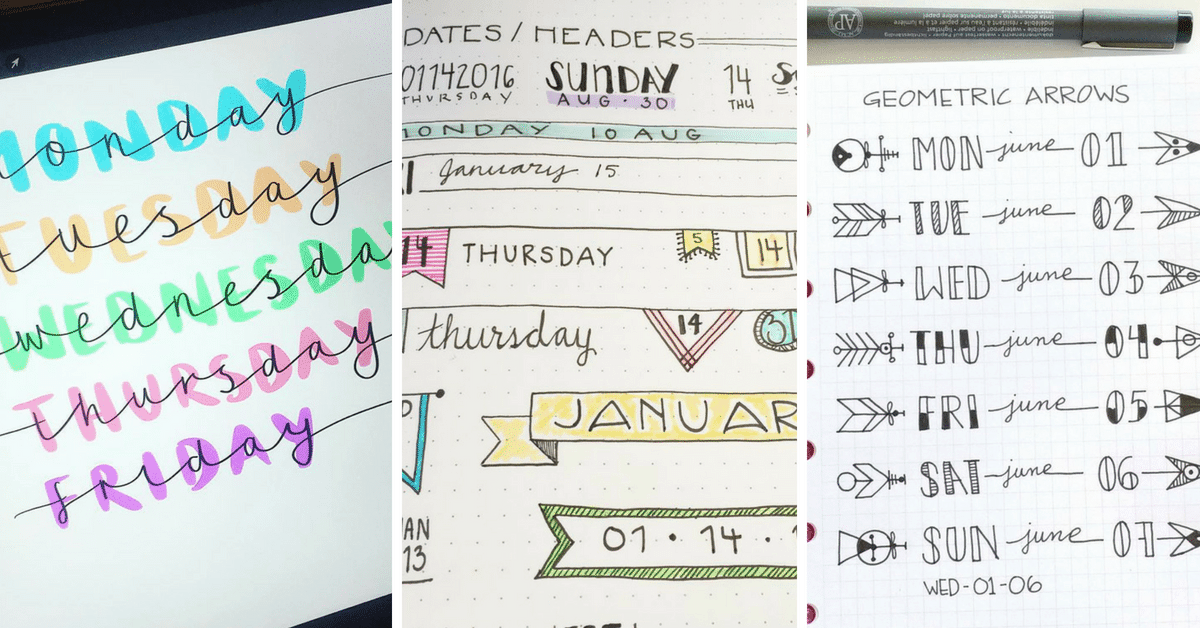 MONDAY
monday
TUESDAY
tuesday
WEDNESDAY
wednesday
THURSDAY
thursday
FRIDAY
friday
DATES / HEADERS
01142016 SUNDAY 14
THURSDAY AUG · 30 THU
MONDAY 10 AUG
January 15
14 THURSDAY 5 14
thursday 14 31
JANUAR
01 · 14 ·
JAN
13
AP
GEOMETRIC ARROWS
MON june 01
TUE june 02
WED june 03
THU june 04
FRI june 05
SAT june 06
SUN june 07
WED-01-06